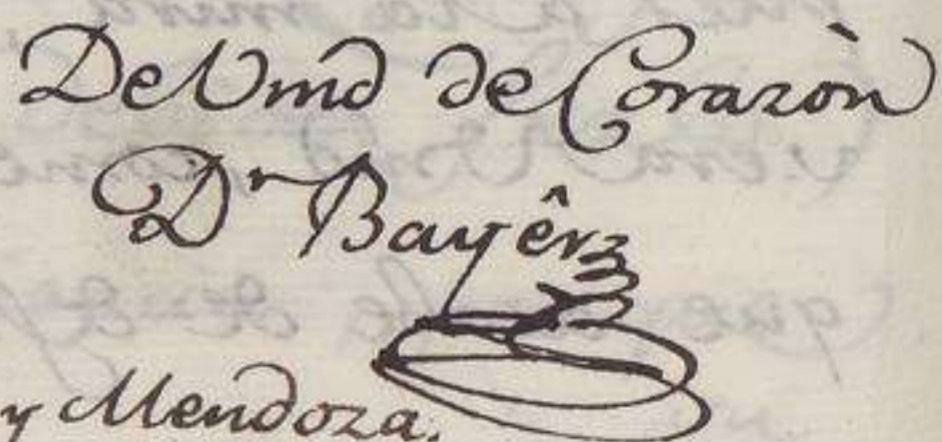 De Vmd de Corazòn
Dr Bayêr
y Mendoza.